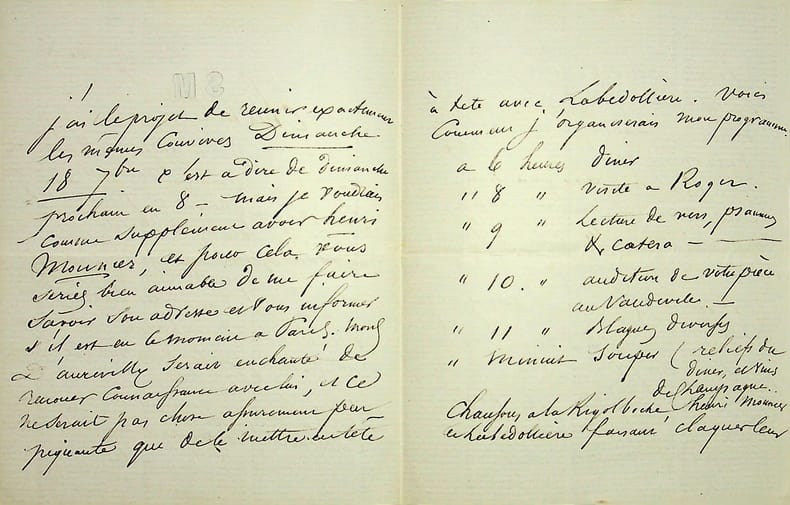 M 8
j'ai le projet de reunir exactement
les mêmes convives Dimanche
18 7bre c'est a dire de Dimanche
prochain en 8 – mais je voudrais
comme supplement avoir henri
Mounier, et pour cela vous
seriez bien aimable de me faire
savoir son adresse et vous informer
s'il est en ce moment a Paris. Mons
D'aurevilly serait enchanté de
renouer connaissance avec lui, et ce
ne serait pas chose assurement peu
piquante que de le mettre en tête
à tete avec Labedollière. Voici
comment j'organiserais mon programme
a 6 heures diner
" 8 " visite a Roger.
" 9 " Lecture de vers, pianos
& cætera –
" 10. " audition de votre pièce
au Vaudeville. –
" 11 " Blagues diverses
" Minuit Souper (reliefs du
diner, et vins
de champagne..
Chansons a la Rigolboche, henri Mounier
et Labedollière faisant claquer leur